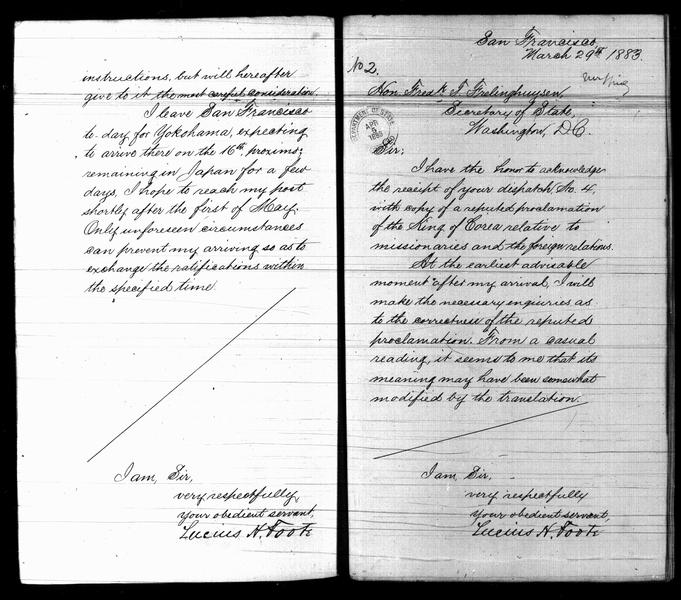 instructions, but will hereafter
give to it the most careful consideration.
I leave San Francisco
to-day for Yokohama, expecting
to arrive there on the 16th, proximo;
remaining in Japan for a few
days, I hope to reach my post
shortly after the first of May.
Only unforeseen circumstances
can prevent my arriving so as to
exchange the ratifications within
the specified time.
I am, Sir,
very respectfully,
your obedient servant,
Lucius H. Foote
San Francisco,
March 29th 1883.
No 2.
Hon Fredk T Frelinghuysen,
Secretary of State,
Washington, D.C.
DEPARTMENT OF STATE
APR
5
1883
Sir:
I have the honor to acknowledge
the receipt of your dispatch No. 4,
with copy of a reputed proclamation
of the King of Corea relative to
missionaries and the foreign relations.
At the earliest advisable
moment after my arrival, I will
make the necessary inquiries as
to the correctness of the reputed
proclamation. From a casual
reading, it seems to me that its
meaning may have been somewhat
modified by the translation.
I am, Sir,
very respectfully
your obedient servant,
Lucius H. Foote